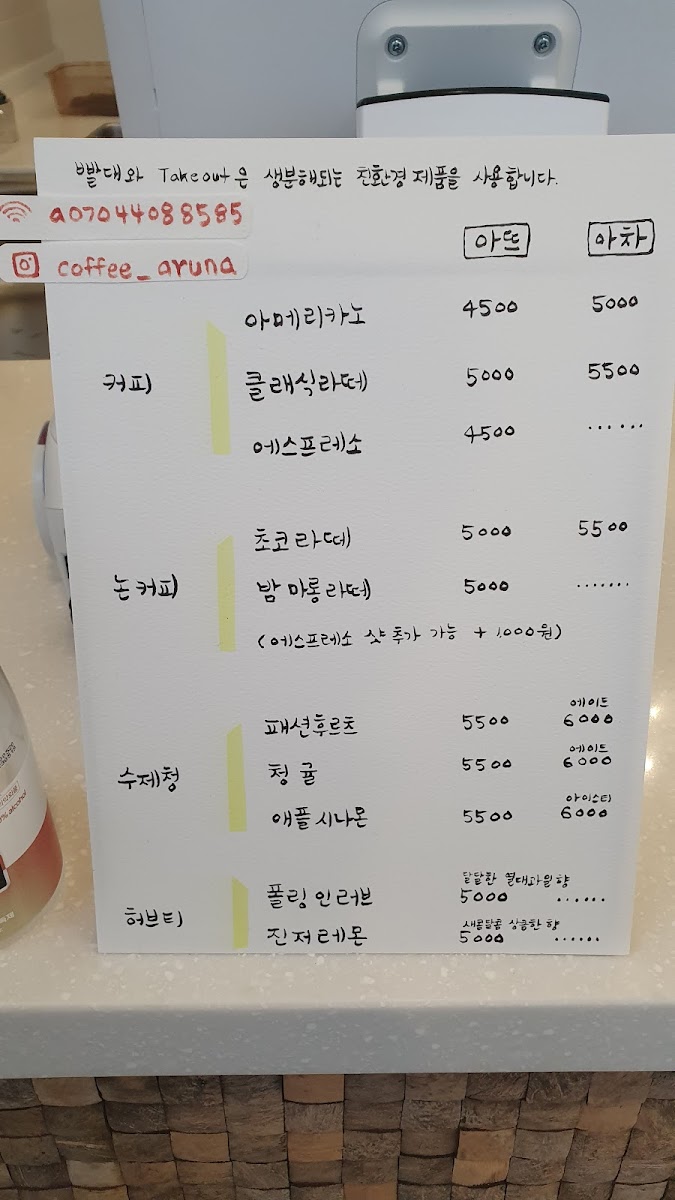 빨대와 Takeout은 생분해되는 친환경 제품을 사용합니다.
a07044088585
coffee_aruna
아뜨 아차
커피
아메리카노 4500 5000
클래식라떼 5000 5500
에스프레소 4500 ......
논커피
초코라떼 5000 5500
밤 마롱라떼 5000 .......
(에스프레소 샷 추가 가능 + 1,000원)
수제청
에이드
패션후르츠 5500 6000
에이드
청귤 5500 6000
아이스티
애플시나몬 5500 6000
허브티
달달한 열대과일향
폴링인러브 5000 ......
새콤달콤 상큼한 향
진저레몬 5000 ......
% alcohol